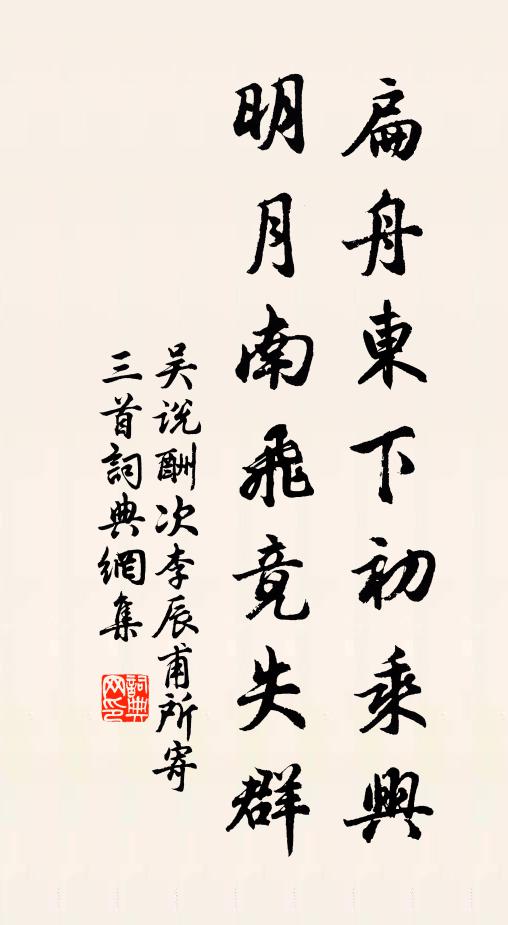 扁舟東下初乘興
明月南飛竟失群
吴说酬次李辰甫所寄
三首詞典網集
詞典
网印